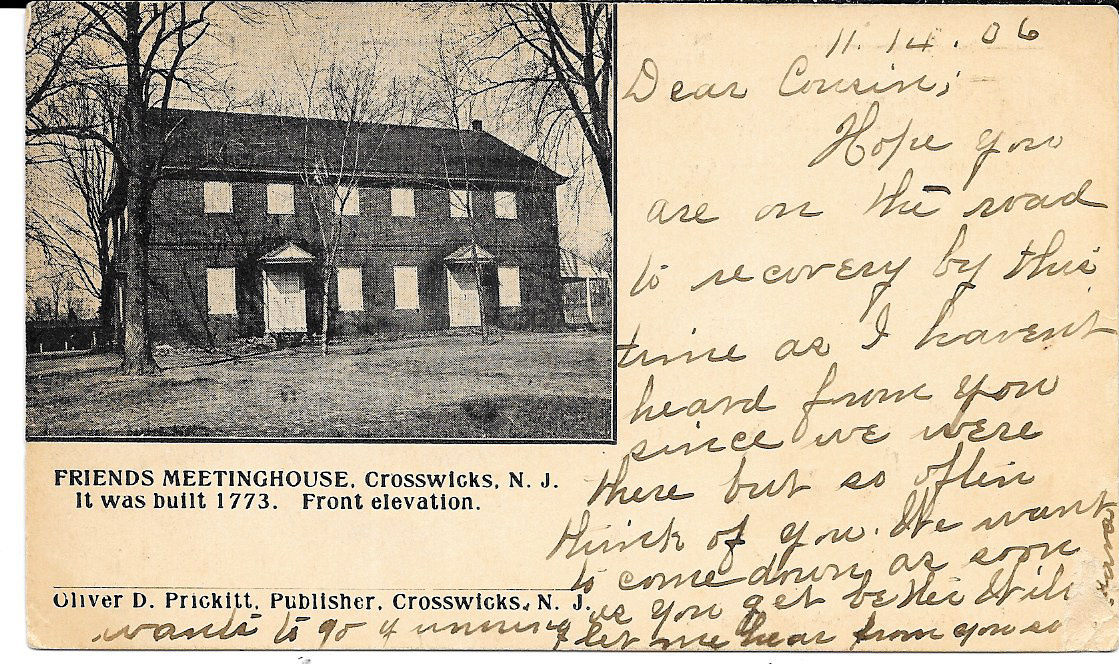 FRIENDS MEETINGHOUSE, Crosswicks, N. J.
It was built 1773. Front elevation.
Oliver D. Prickitt, Publisher, Crosswicks, N. J.
11. 14. 06
Dear Cousin;
Hope you
are on the road
to recovery by this
time as I havent
heard from you
since we were
there but so often
think of you. We want
to come down as soon
as you get better Will
wants to go gunning
let me hear from you so